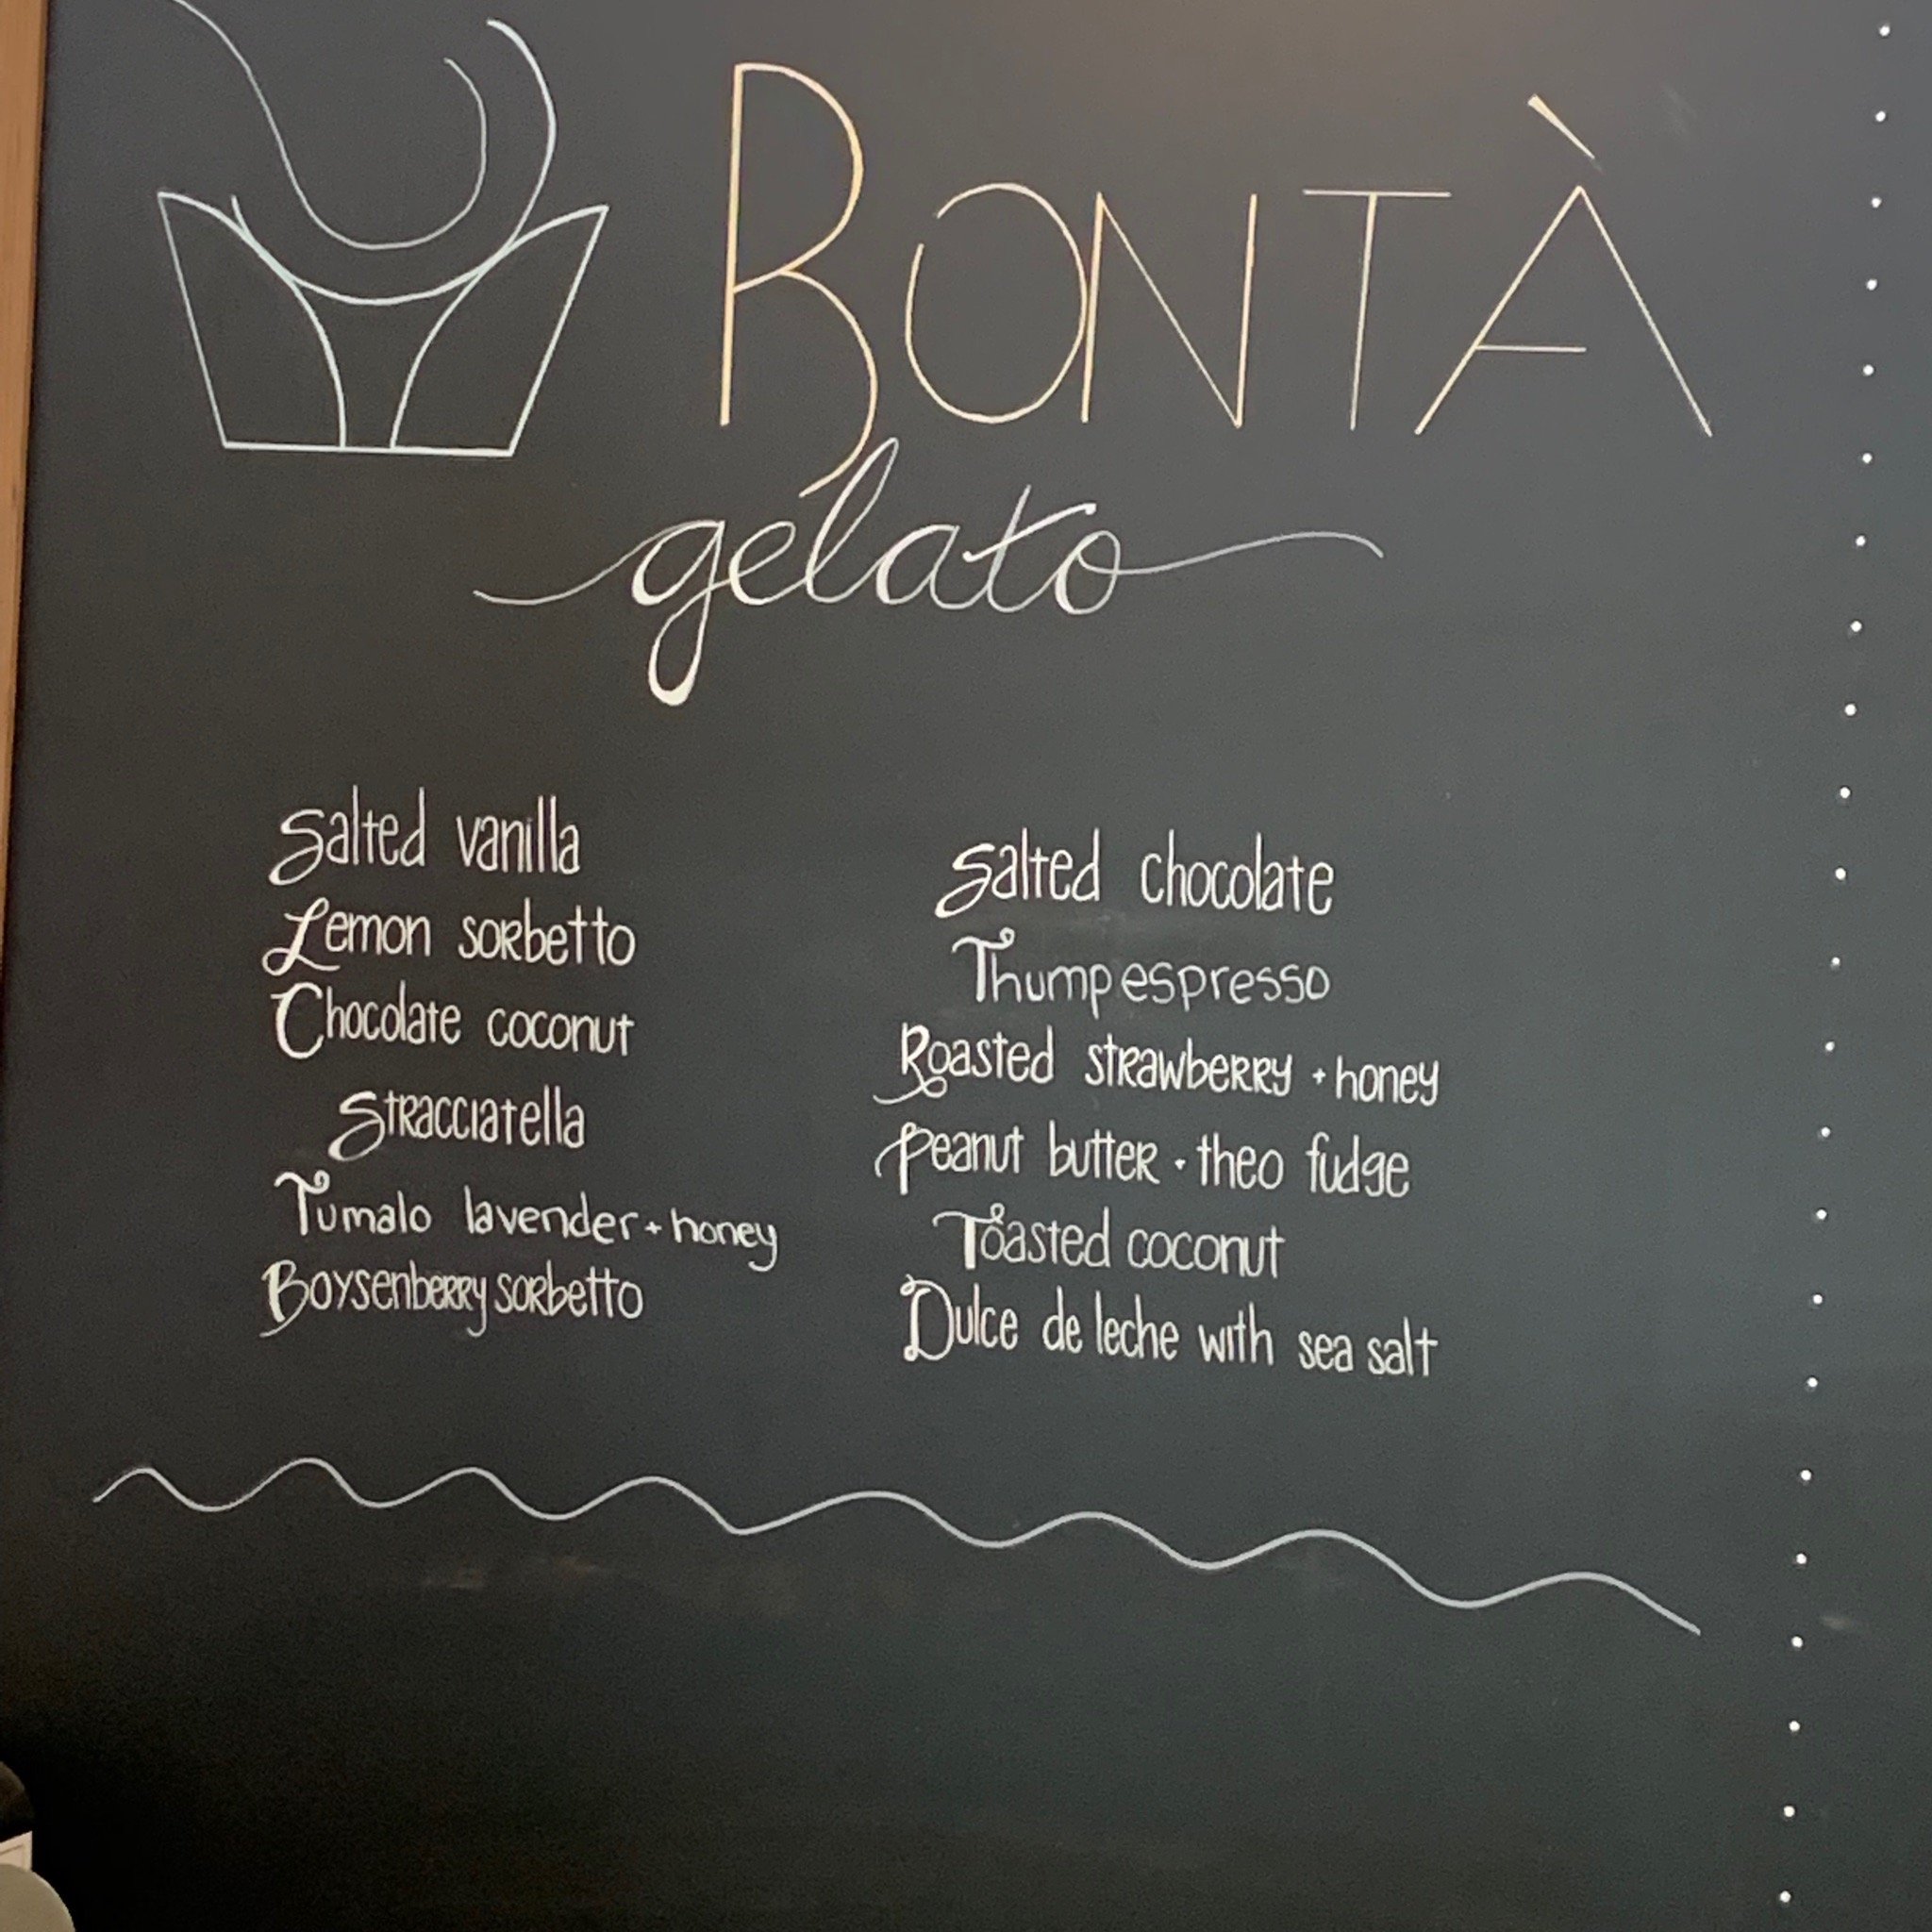 BONTÀ
gelato
Salted vanilla
Lemon sorbetto
Chocolate coconut
Stracciatella
Tumalo lavender + honey
Boysenberry sorbetto
Salted chocolate
Thump espresso
Roasted strawberry + honey
Peanut butter · theo fudge
Toasted coconut
Dulce de leche with sea salt